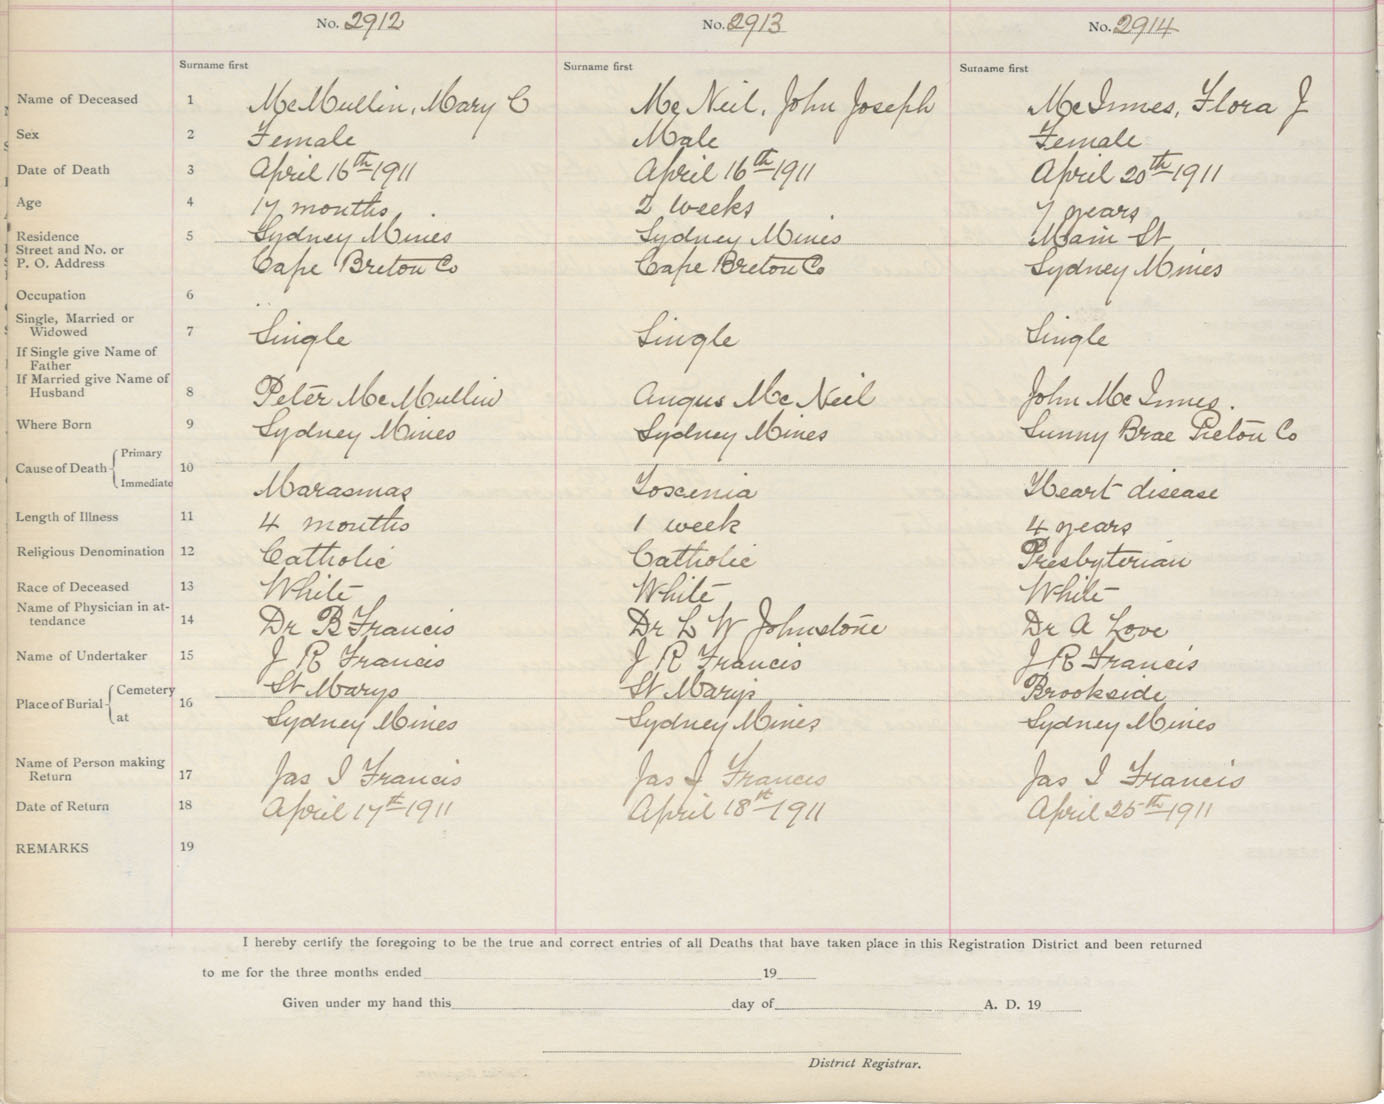 No. 2912 No. 2913 No. 2914
Surname first Surname first Surname first
Name of Deceased 1 McMullin, Mary C McNeil, John Joseph McInnes, Flora J
Sex 2 Female Male Female
Date of Death 3 April 16th 1911 April 16th 1911 April 20th 1911
Age 4 17 months 2 weeks 7 years
Residence 5 Sydney Mines Sydney Mines Main St
Street and No. or
P. O. Address Cape Breton Co Cape Breton Co Sydney Mines
Occupation 6
Single, Married or
Widowed 7 Single Single Single
If Single give Name of
Father
If Married give Name of
Husband 8 Peter McMullin Angus McNeil John McInnes.
Where Born 9 Sydney Mines Sydney Mines Sunny Brae Pictou Co
Cause of Death Primary 10
Immediate Marasmas Toxcenia Heart disease
Length of Illness 11 4 months 1 week 4 years
Religious Denomination 12 Catholic Catholic Presbyterian
Race of Deceased 13 White White White
Name of Physician in at-
tendance 14 Dr B Francis Dr L W Johnstone Dr A Love
Name of Undertaker 15 J R Francis J R Francis J R Francis
Place of Burial Cemetery 16 St Marys St Mary's Brookside
at Sydney Mines Sydney Mines Sydney Mines
Name of Person making
Return 17 Jas J Francis Jas J Francis Jas J Francis
Date of Return 18 April 17th 1911 April 18th 1911 April 25th 1911
REMARKS 19
I hereby certify the foregoing to be the true and correct entries of all Deaths that have taken place in this Registration District and been returned
to me for the three months ended 19
Given under my hand this day of A. D. 19
District Registrar.